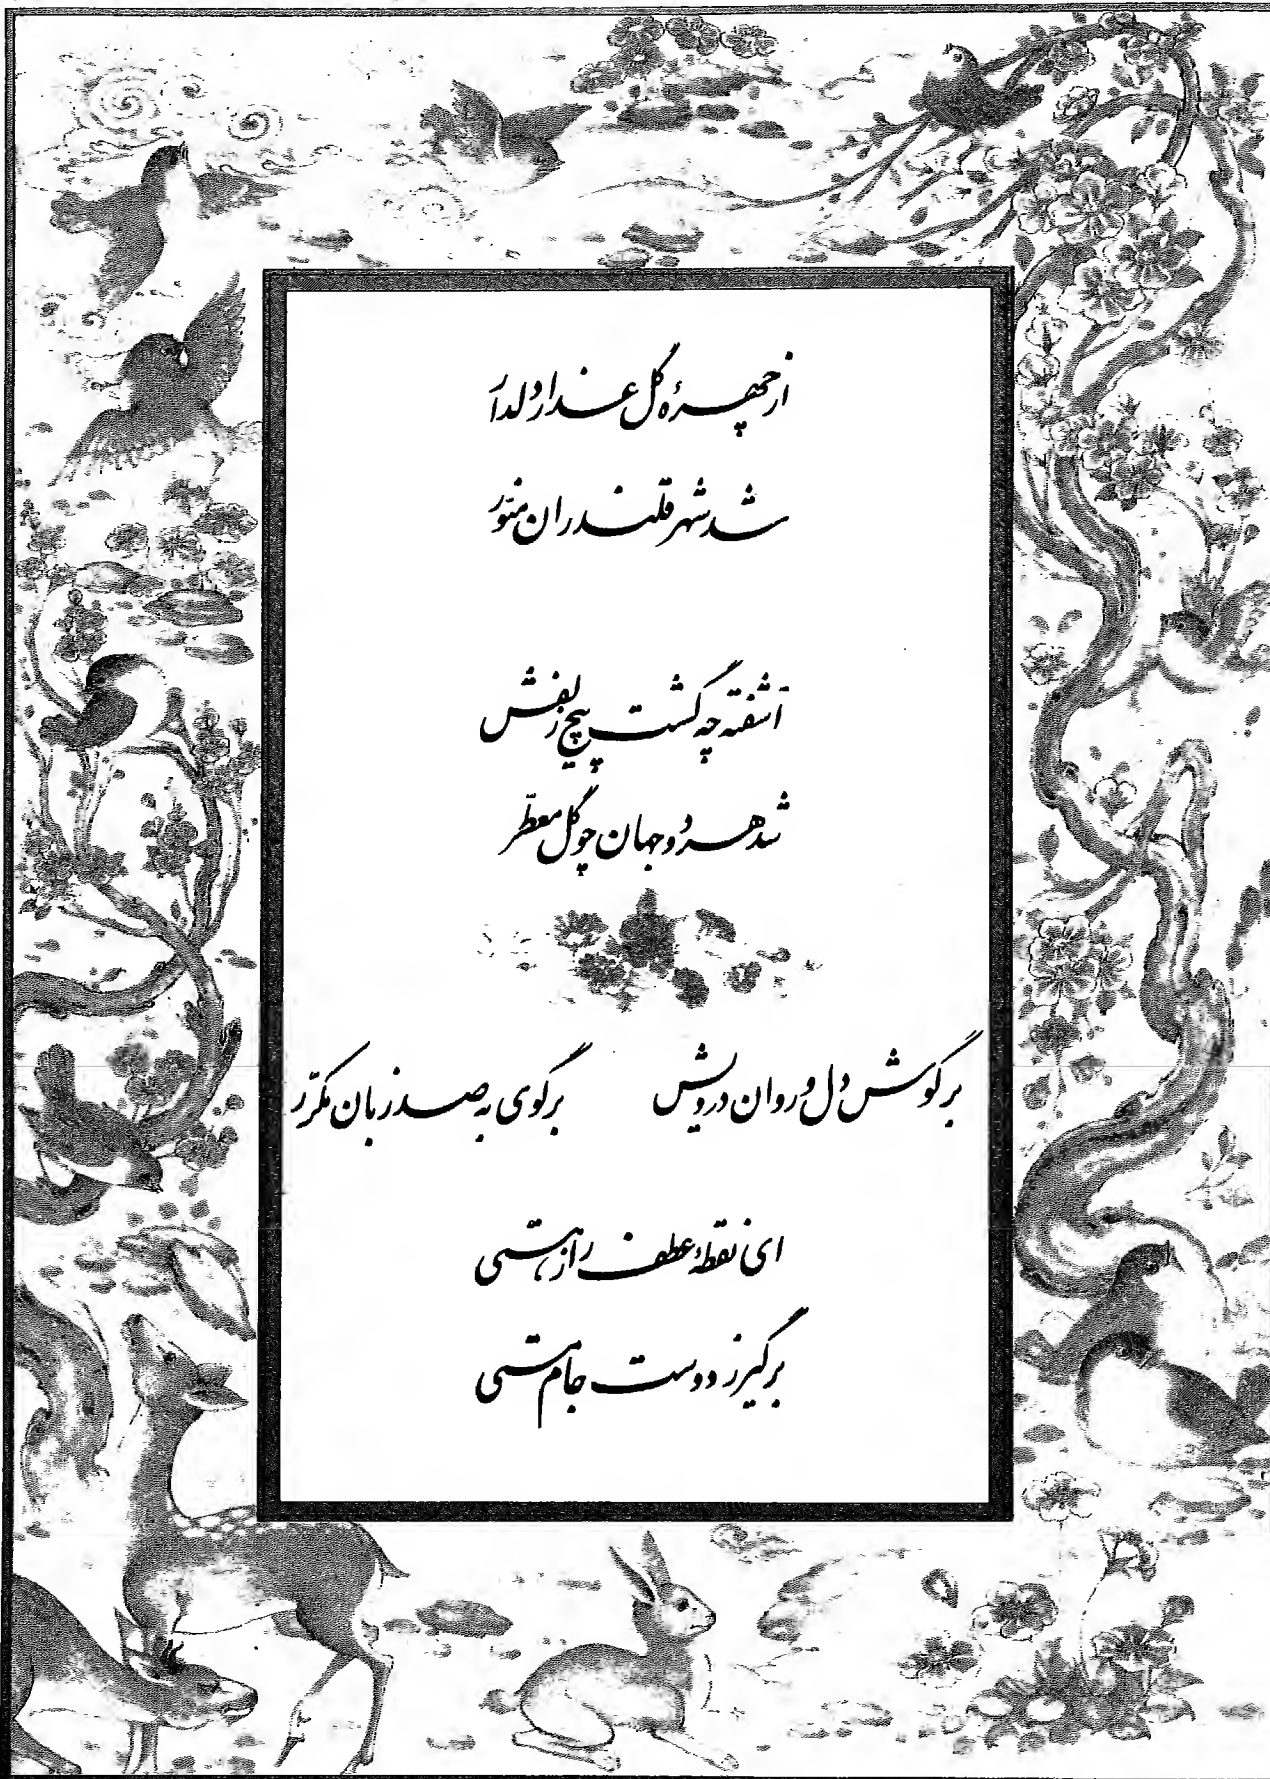 از چهرهٔ گل عذار دلدار
شد شهر قلندران منوّر
آشفته چه گشت پیچ زلفش
شد هر دو جهان چو گل معطّر
بر گوش دل و روان درویش برگوی به صد زبان مکرّر
ای نقطهٔ عطف راز هستی
برگیر ز دوست جام مستی